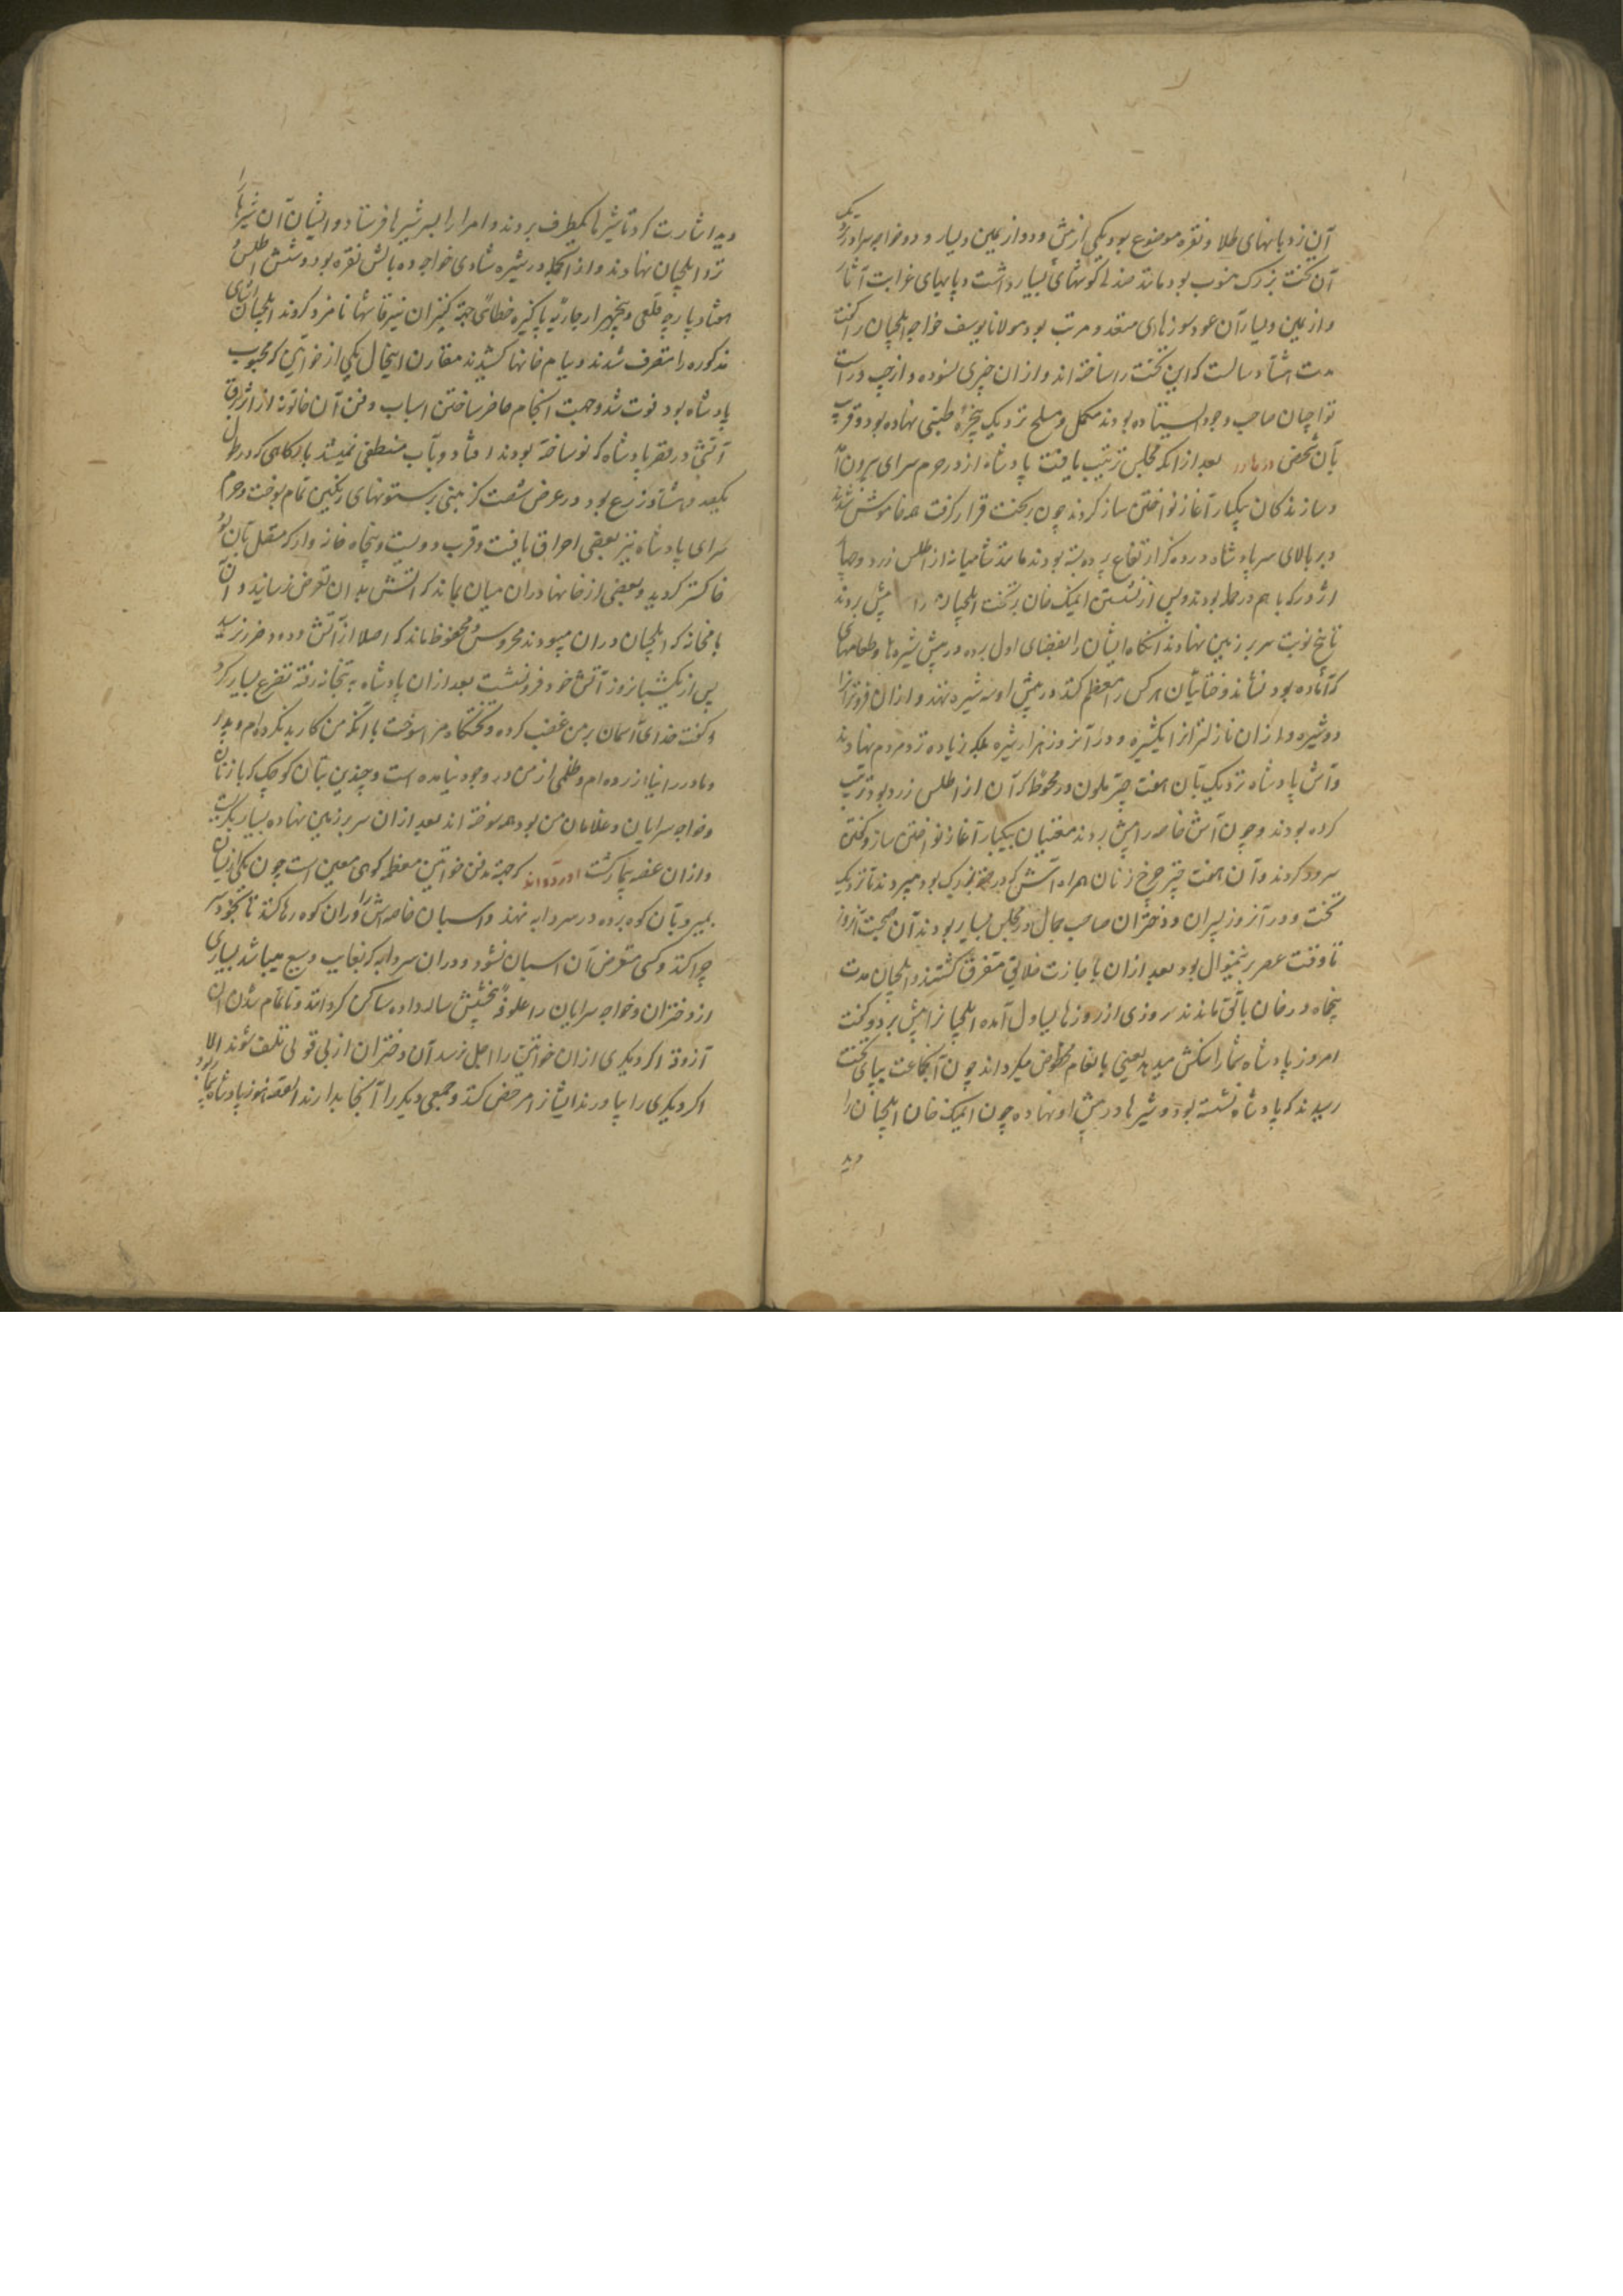 آن نردبانهای طلا و نقره موضوع بود یکی از پیش و دو از یمین و یسار و دو خواجه سرا در
آن تخت بزرک منصوب بود مانند صندلی کوشهای بسیار داشت و پایهای غرابت آثار
و از یمین و یسار آن عود سوزهای متعدد مرتب بود مولانا یوسف خواجه ایلچیان را کفت
مدت هشتاد سالست که این تخت را ساخته اند و از ان چیزی نسوده و از چپ و راست
تواچیان صاحب وجود ایستاده بودند مکمل و مسلح نزدیک پنجره طبقی نهاده بود و قریب
بآن شخص بعد از انکه مجلس ترتیب یافت پادشاه از در حرم سرای بیرون آمد
و سازندکان بیکبار آغاز نواختن ساز کردند چون بر تخت قرار کرفت همه خاموش شدند
و بر بالای سر پادشاه در ده کز ارتفاع پرده بسته بودند مانند شامیانه از اطلس زرد و چهار
اژدر که با هم در حمله بودند و پس از نشستن ایمک خان بر تخت ایلچیان را پیش بردند
تا پنج نوبت سر بر زمین نهادند انکاه ایشان را بفضای اول برده در پیش شیره ها و طعامهای
که آماده بود نشاندند و ختائیان هر کس را معظم کنند در پیش او سه شیره نهند و از ان فروتر را
دو شیره و از ان نازلتر از ایکشیره و در آنروز هزار شیره بلکه زیاده نزد مردم نهادند
و آش پادشاه نزدیک بآن هفت چتر ملون در محوطه که آن از اطلس زرد بود ترتیب
کرده بودند و چون آش خاصه را پیش بردند مغنیان بیکبار آغاز نواختن ساز و کفتن
سرود کردند و آن هفت چتر چرخ زنان همراه آش که در بود میبردند تا نزدیک
تخت و در آنروز پسران و دختران صاحب جمال در مجلس بسیار بودند آن صحبت آنروز
تا وقت عصر بر منوال بود بعد از ان باجازت خلایق متفرق کشتند و ایلچیان مدت
پنجاه در خان بالق ماندند روزی از روزها یساول آمده ایلچیانرا پیش برد و کفت
امروز پادشاه شما را سنکش میدهد یعنی بانعام مخصوص میکرداند چون آنجماعت بپای تخت
رسیدند که پادشاه نشسته بود و شیرها در پیش او نهاده چون ایمک خان ایلچیان را
دید
دید اشارت کرد تا شیرها بکطرف بردند و امرا را بسر شیرها فرستاد و ایشان آن شیرها را
نزد ایلچیان نهادند و از انجمله در شیره شادی خواجه ده بالش نقره بود و شش اطلس
هفتاد پارچه قلعی و پنجهزار جاو و پاکیزه خطائی جهة کنیزان نیز قماشها نامزد کردند ایلچیان اشیای
مذکوره را متصرف شدند و بیام خانها کشیدند مقارن اینحال یکی از خواتین که محبوب
پادشاه بود فوت شد و جهت انجام حاضر ساختن اسباب دفن آن خاتون از اثر برق
آتشی در قصر پادشاه که نو ساخته بودند افتاد و بآب منطفی نمیشد بارکاهی که در طول
یکصد و هشتاد زرع بود و در عرض شصت کز مبنی بر ستونهای رنکین تمام بوخت و حرم
سرای پادشاه نیز بعضی احراق یافت و قرب دویست و پنجاه خانه وار که متصل بآن بود
خاکستر کردید و بعضی از خانها در ان میان بماند که اتشش بدان تعرض نرسانید و آن
بامخانه که ایلچیان در ان میبودند محروس و محفوظ ماند که اصلا از آتش و دود ضرر نرسید
پس از یکشبانروز آتش خود فرو نشست بعد از ان پادشاه به بتخانه رفته تضرع بسیار کرد
و کفت خدای آسمان بر من غضب کرده و تختکاه مرا سوخت با آنکه من کار بد نکرده ام و پدر
و مادر را نیازرده ام و ظلمی از من در وجود نیامده است و چندین بتان کوچک که با زنان
و خواجه سرایان و غلامان من بود همه سوخته اند بعد از ان سر بر زمین نهاده بسیار بکریست
و از ان غصه بیمار کشت آورده اند که جهة دفن خواتین معظمه کوهی معین است چون یکی از ایشان
بمیرد بآن کوه برده در سردابه نهند و اسبان خاصه اش را در ان کوه رها کنند تا بخود
چرا کند و کسی متعرض آن اسبان نشود و در ان سردابه که بغایت وسیع میباشد بسیاری
از دختران و خواجه سرایان را علوفه پنج شش ساله داده ساکن کردانند و تا تمام شدن آن
آزوقه اکر دیکری از ان خواتین را اجل نرسد آن دختران از بی قوتی تلف شوند الا
اکر دیکری را بیاورند ایشانرا مرخص کنند و جمعی دیکر را آنجا بدارند القصه هنوز پادشاه بیمار بود